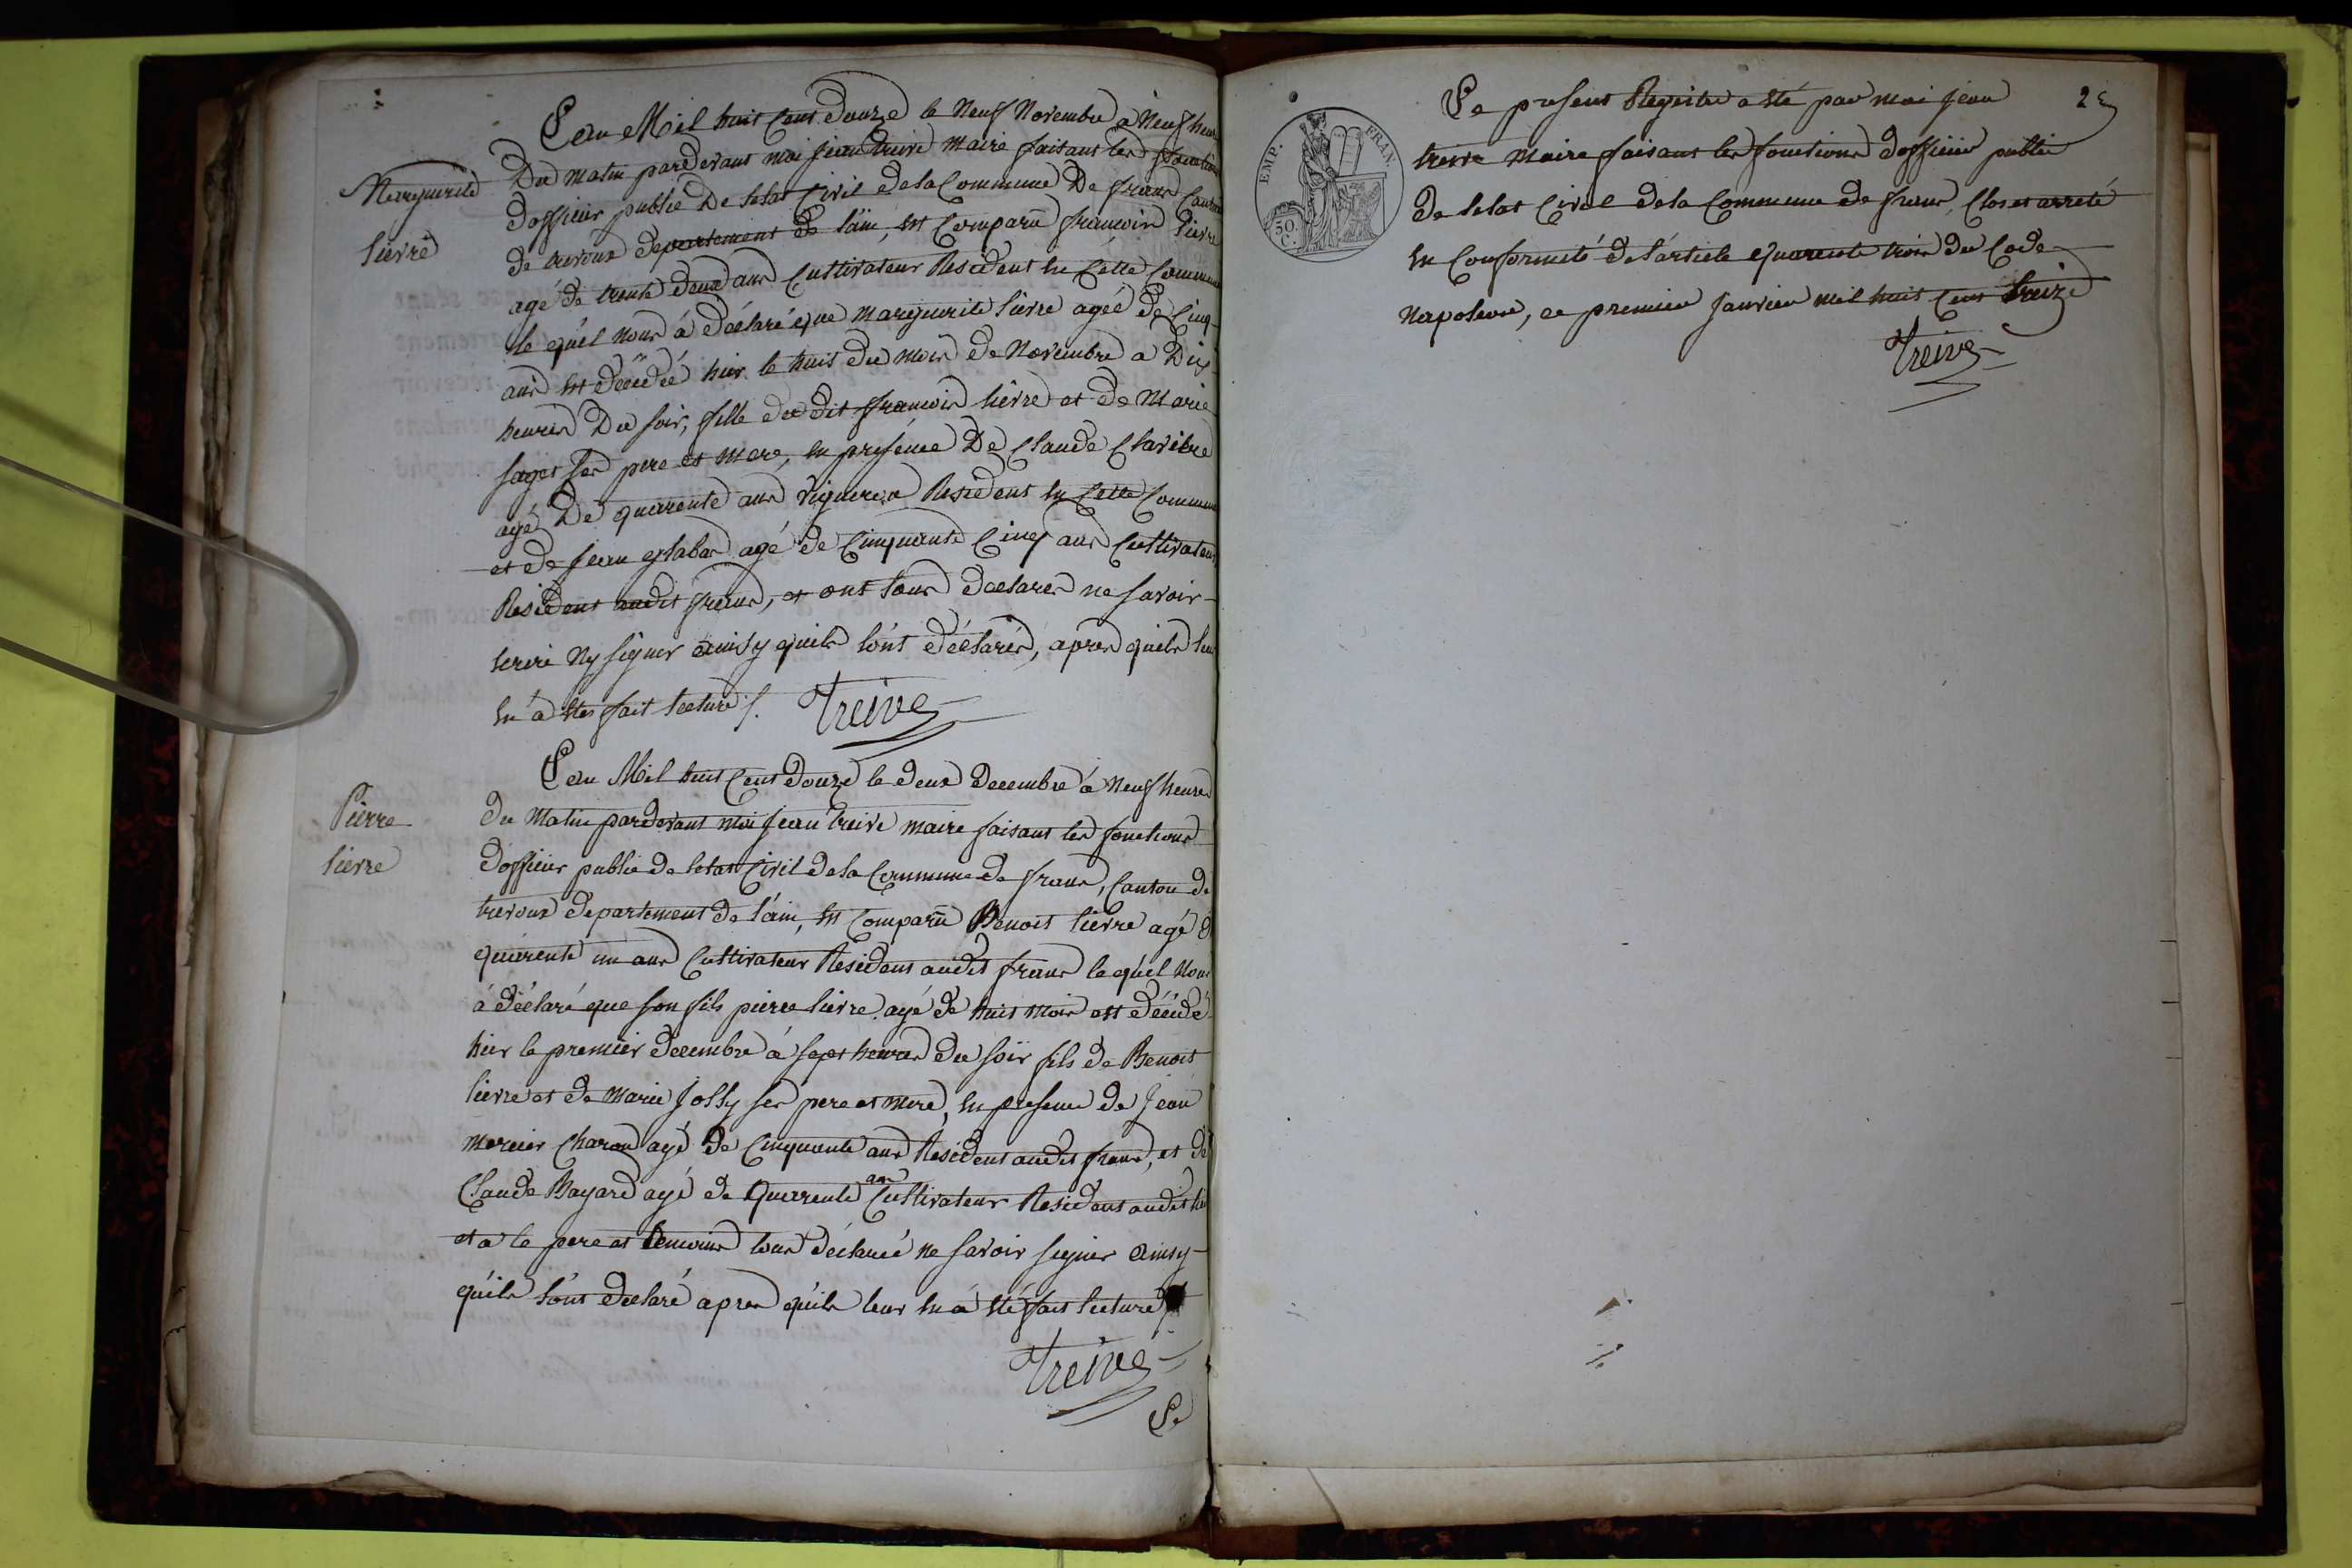 Marguerite
lievre
L'an Mil huit Cent douze le Neuf Novembre à Neuf heures
Du matin pardevant moi jean treive maire faisant les fonctions
d'officier public De letat Civil de la Commune De frans Canton
de trevoux departement de l'ain, est Comparu francois lievre
agé de trente deux ans Cultivateur Resident en Cette Commune
le quel nous à déclaré que marguerite lievre agée de Cinq
ans est décédée hier le huit du mois de Novembre a Dix
heures Du soir, fille du dit francois lievre et de Marie
ses pere et mere, en présence De Claude Clavière
agé De quarente ans vigneron Resident en Cette Commune
et de jean agé de Cinquante Cinq ans Cultivateur
Resident audit frans, et ont tous declares ne savoir
ecrire Ny signer ainsy quils lont déclarés, apres quils leur
en à etes fait lecture /. Treive
Pierre
lievre
L'an Mil huit Cent douze le deux decembre à Neuf heures
du Matin pardevant moi jean treive maire faisant les fonctions
d'officier public de letat Civil de la Commune de frans, Canton de
trevoux departement de l'ain, est Comparu Benoit lievre agé de
quarente un ans Cultivateur Resident audit frans le quel Nous
à déclaré que son fils pierre lievre agé de huit mois est décédé
hier le premier decembre à sept heures du soir fils de Benoit
lievre et de Marie Jolly ses pere et mere, en presence de Jean
mercier Charon agé de Cinquante ans Resident audit frans, et de
Claude Bayard agé de Quarente ans Cultivateur Resident audit lieu
et a le pere et temoins tous déclaré ne savoir signer ainsy
quils lont declaré apres quils leur en à été fait lecture
Treive
Le
EMP. FRAN.
50 C.
25
Le present Registre a eté par moi jean
treive maire faisant les fonctions d'officier public
de letat Civil de la Commune de frans, Clos et arreté
en Conformité de l'article quarente trois du Code
Napoleon, ce premier janvier mil huit Cent treize
Treive